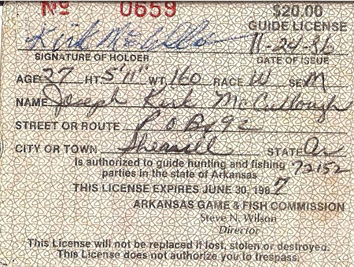 No 0659
$20.00
GUIDE LICENSE
Kirk McCullo 11-24-86
SIGNATURE OF HOLDER DATE OF ISSUE
AGE 27 HT. 5'11" WT. 160 RACE W SEX M
NAME Joseph Kirk McCullough
STREET OR ROUTE P O Box 92
CITY OR TOWN Sherrill STATE Ar
Is authorized to guide hunting and fishing 72152
parties in the state of Arkansas
THIS LICENSE EXPIRES JUNE 30, 1987
ARKANSAS GAME & FISH COMMISSION
Steve N. Wilson
Director
This License will not be replaced if lost, stolen or destroyed.
This License does not authorize you to trespass.